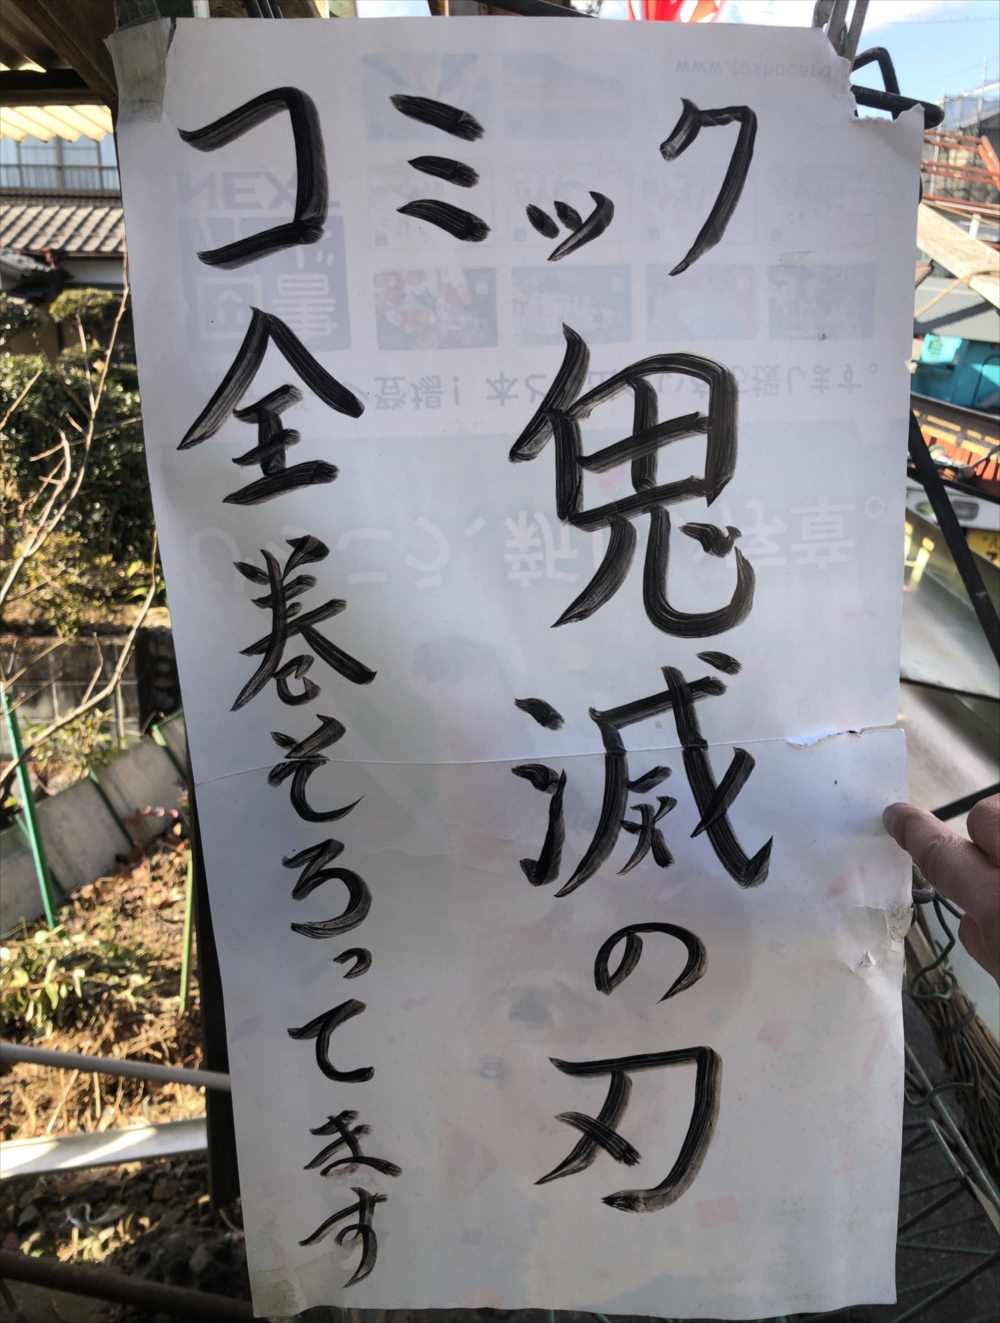 コミック
鬼滅の刃
全巻そろってます